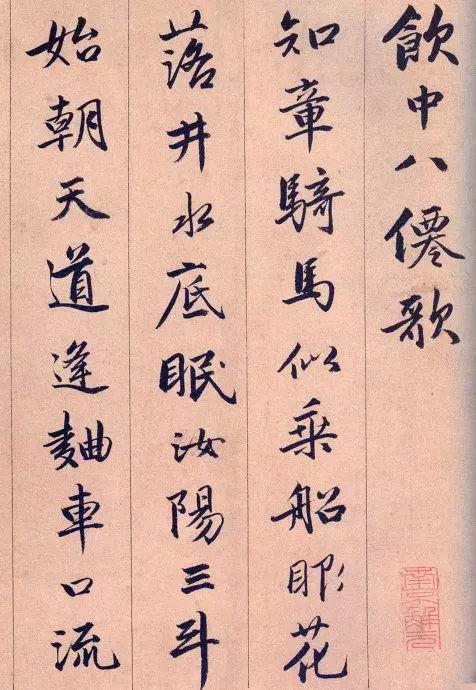 飲中八僊歌
知章騎馬似乘船眼花
落井水底眠汝陽三斗
始朝天道逢麯車口流